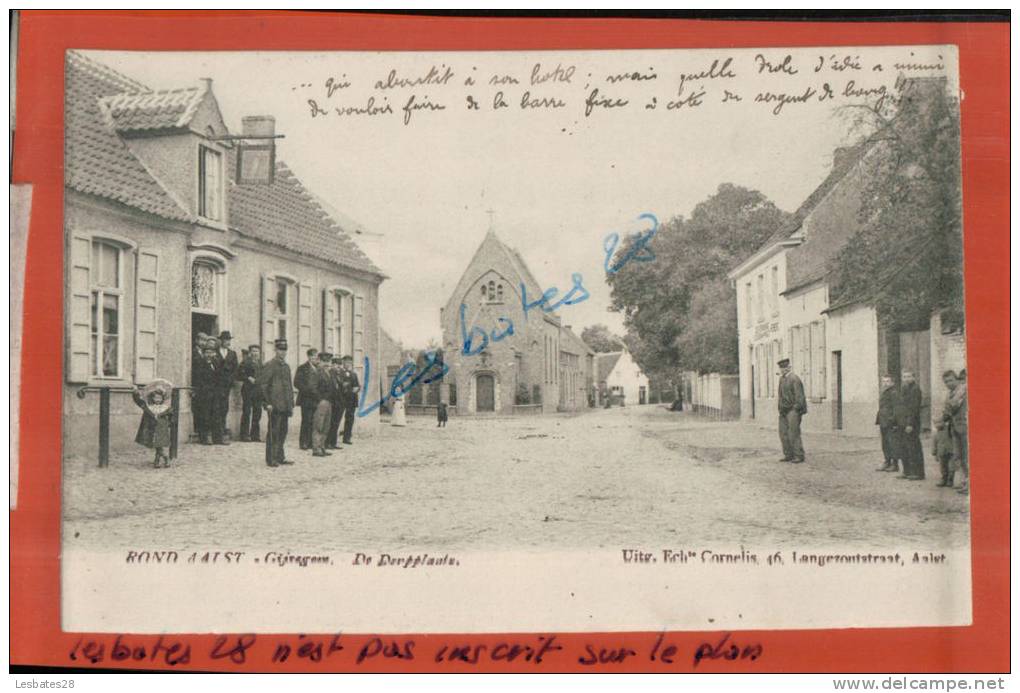 ... qui aboutit à son hotel ; mais quelle drole d'idée a
de vouloir faire de la barre fixe à coté du sergent de
Les batos 28
ROND AALST - Gijzegem. De Dorpplaats.
Uitg. Echn Cornelis, 46, Langezoutstraat, Aalst
les batos 28 n'est pas inscrit sur le plan
Lesbates28
http://www.delcampe.net